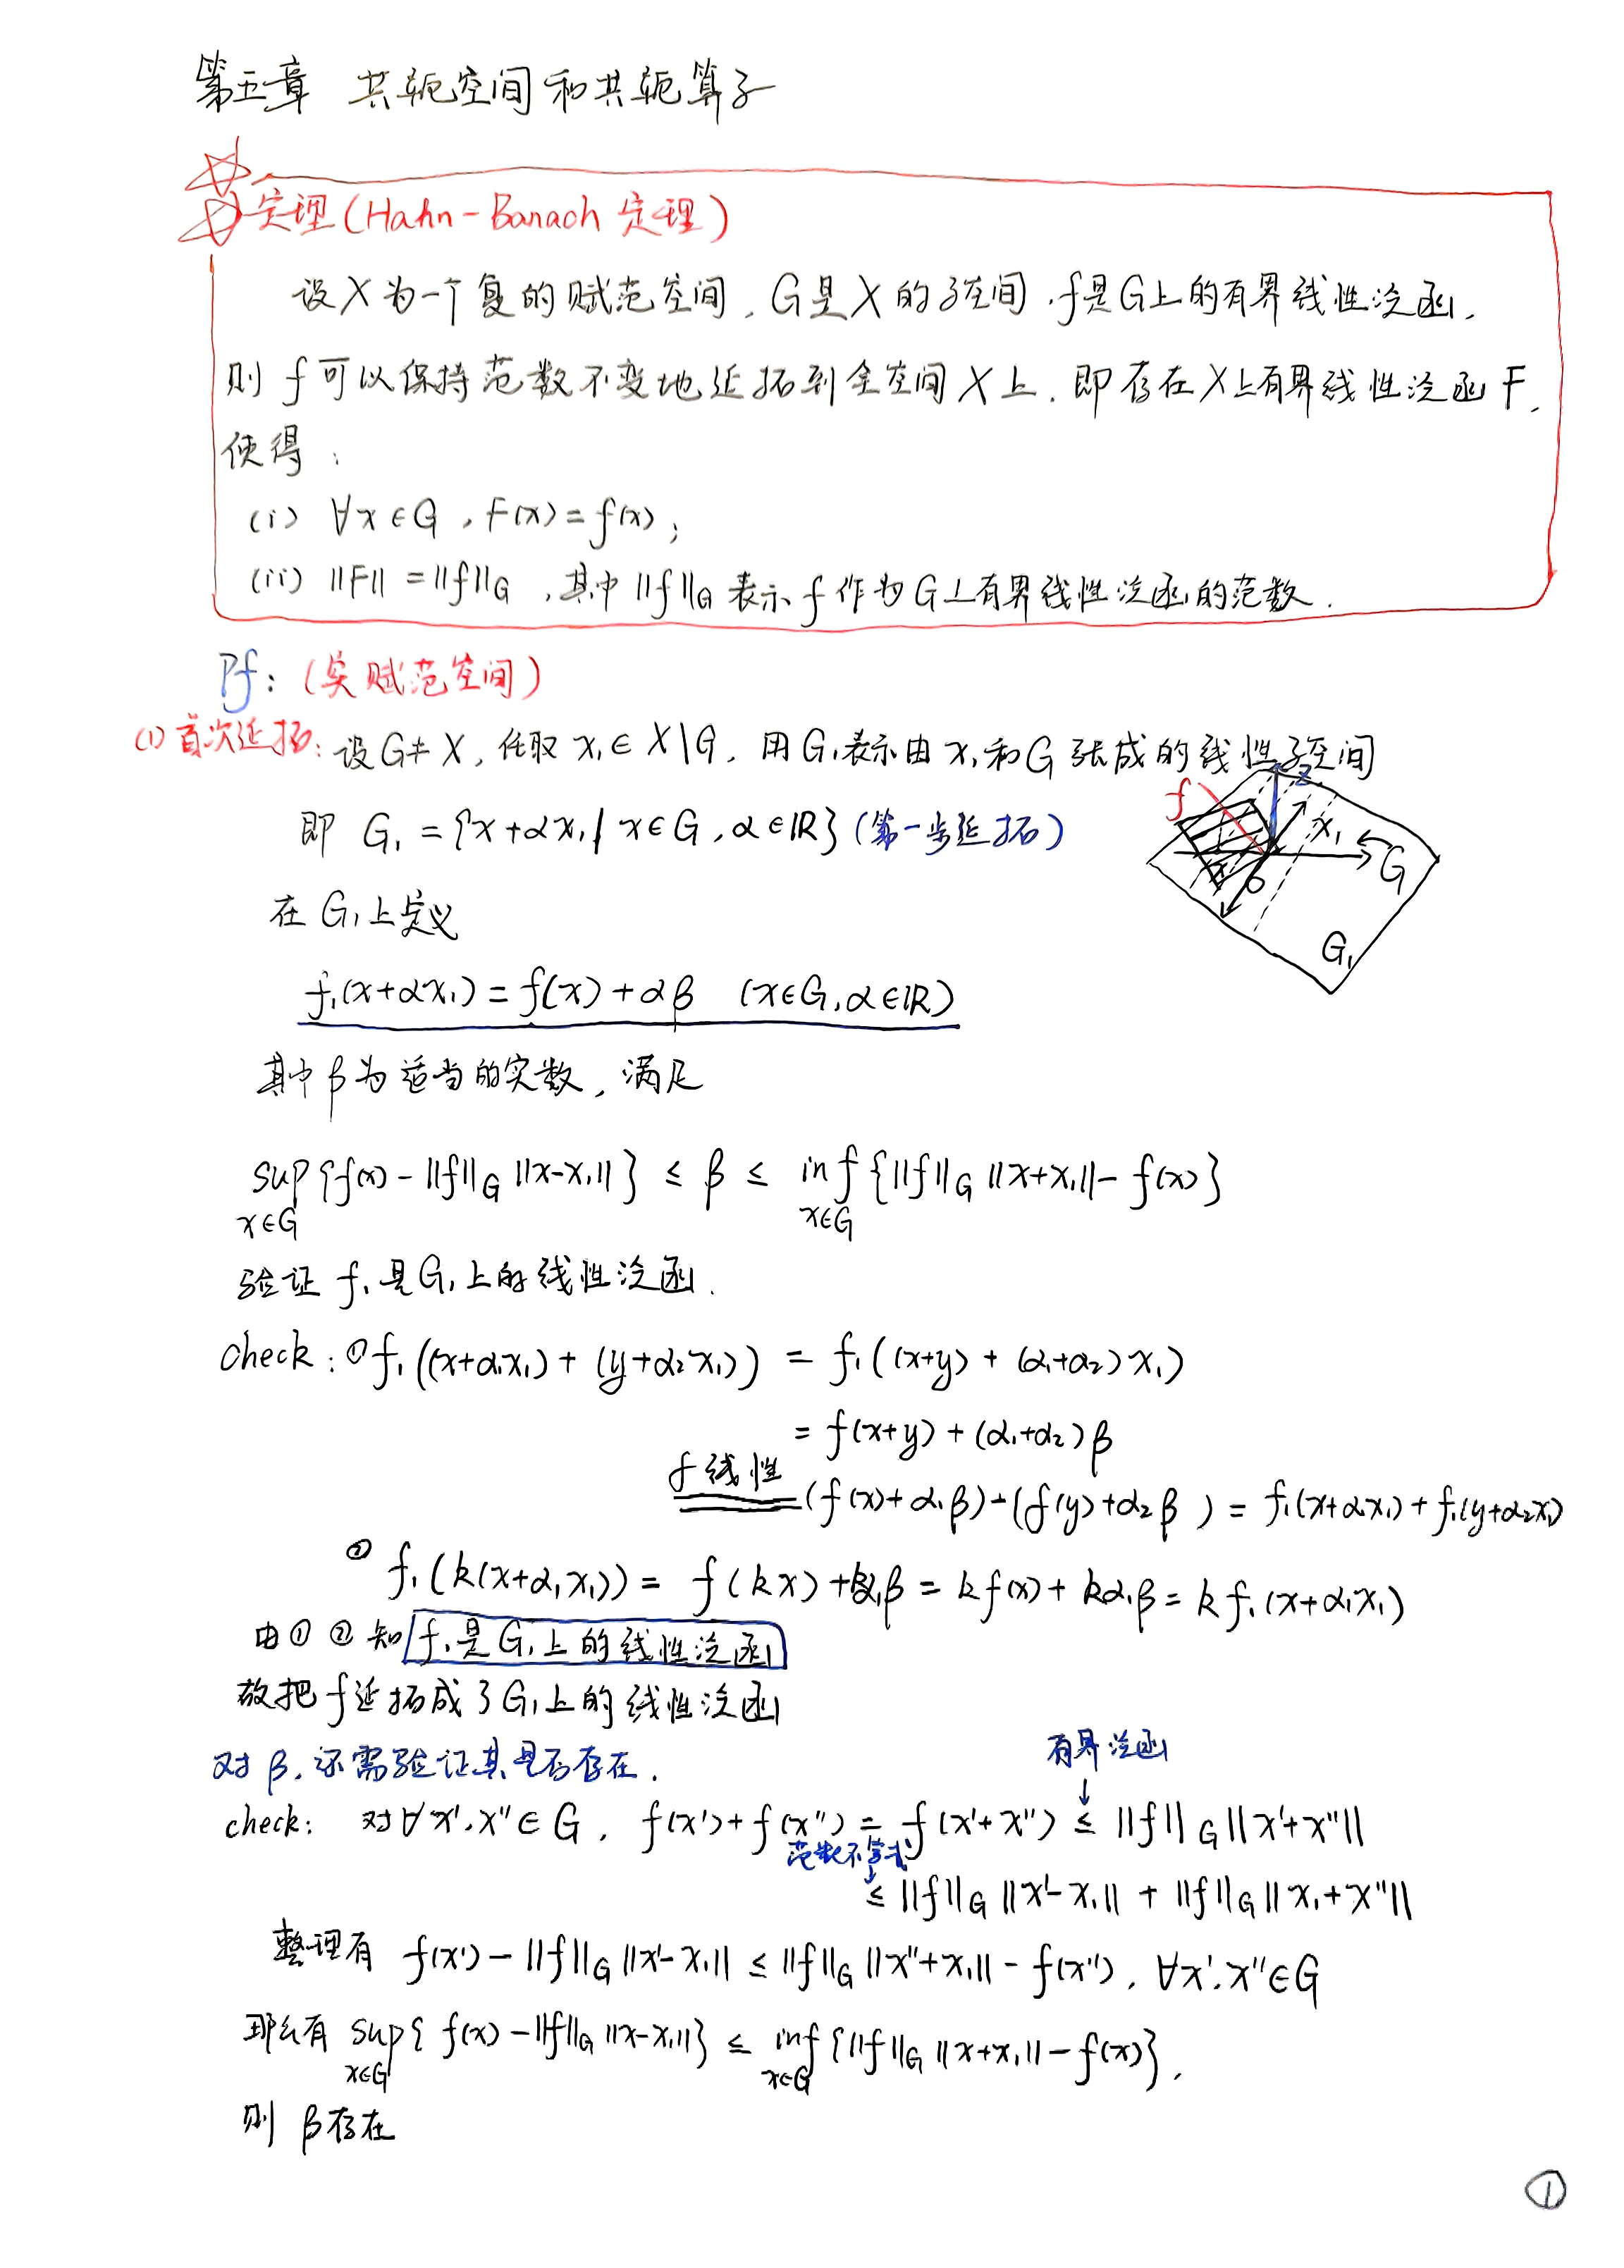 第五章 共轭空间和共轭算子
定理(Hahn-Banach 定理)
设X为一个复的赋范空间,G是X的子空间,f是G上的有界线性泛函,
则 f 可以保持范数不变地延拓到全空间X上,即存在X上有界线性泛函F,
使得:
(i) ∀x∈G, F(x)=f(x);
(ii) ||F||=||f||_G, 其中||f||_G表示f作为G上有界线性泛函的范数.
Pf: (实赋范空间)
(1)首次延拓: 设G≠X, 任取x₁∈X\G, 用G₁表示由x₁和G张成的线性子空间
即 G₁={x+αx₁ | x∈G, α∈ℝ} (第一步延拓)
f
z
x₁
G
O
G₁
在G₁上定义
f₁(x+αx₁)=f(x)+αβ (x∈G, α∈ℝ)
其中β为适当的实数, 满足
sup_{x∈G}{f(x)-||f||_G ||x-x₁||} ≤ β ≤ inf_{x∈G}{||f||_G ||x+x₁||-f(x)}
验证f₁是G₁上的线性泛函.
check: ① f₁((x+α₁x₁)+(y+α₂x₁)) = f₁((x+y)+(α₁+α₂)x₁)
= f(x+y)+(α₁+α₂)β
f线性 (f(x)+α₁β)+(f(y)+α₂β) = f₁(x+α₁x₁)+f₁(y+α₂x₁)
② f₁(k(x+α₁x₁)) = f(kx)+kα₁β = kf(x)+kα₁β = kf₁(x+α₁x₁)
由①②知 f₁是G₁上的线性泛函
故把f延拓成了G₁上的线性泛函
对β, 还需验证其是否存在.
有界泛函
↓
check: 对∀x',x''∈G, f(x')+f(x'')=f(x'+x'') ≤ ||f||_G ||x'+x''||
范数不等式
↓
≤ ||f||_G ||x'-x₁|| + ||f||_G ||x₁+x''||
整理有 f(x')-||f||_G ||x'-x₁|| ≤ ||f||_G ||x''+x₁||-f(x''), ∀x',x''∈G
那么有 sup_{x∈G}{f(x)-||f||_G ||x-x₁||} ≤ inf_{x∈G}{||f||_G ||x+x₁||-f(x)},
则 β存在
①